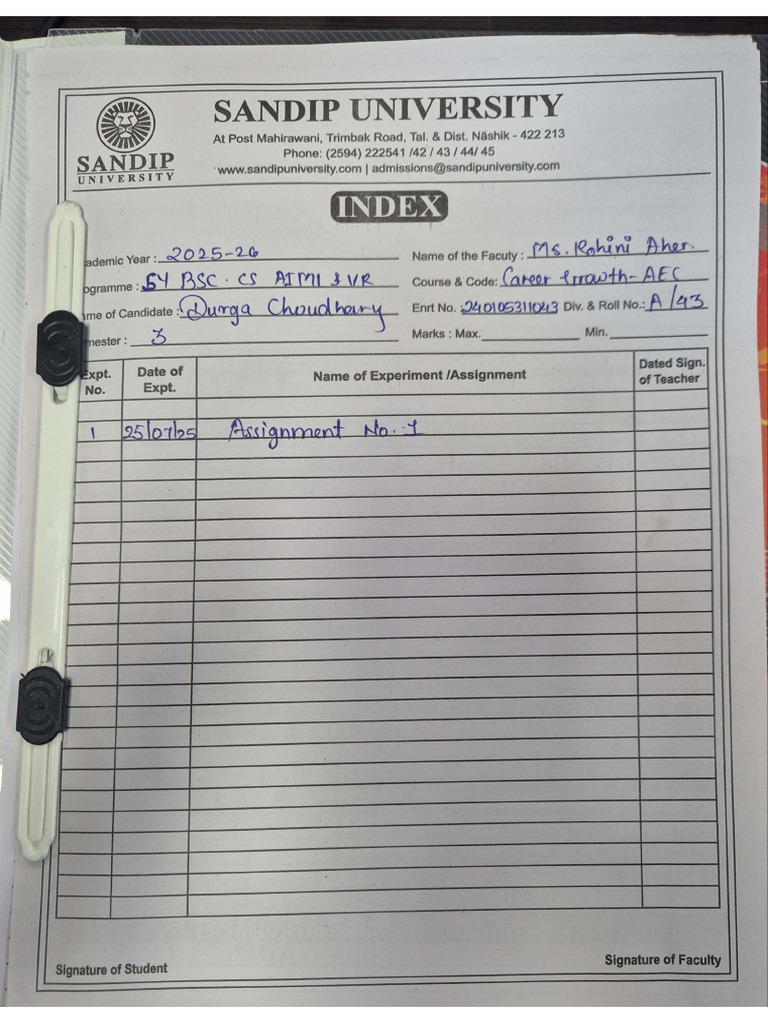 SANDIP UNIVERSITY
At Post Mahirawani, Trimbak Road, Tal. & Dist. Nashik - 422 213
Phone: (2594) 222541 /42 / 43 / 44/ 45
www.sandipuniversity.com | admissions@sandipuniversity.com
SANDIP
UNIVERSITY
INDEX
ademic Year : 2025-26 Name of the Facuty : Ms. Rohini Aher.
ogramme : SY BSC. CS AIML & VR Course & Code: Career Growth-AEC
me of Candidate : Durga Choudhary Enrt No. : 240105311043 Div. & Roll No.: A/43
mester : 3 Marks : Max. Min.
Expt. No. Date of Expt. Name of Experiment /Assignment Dated Sign. of Teacher
1 25/07/25 Assignment No. - 1
Signature of Student Signature of Faculty